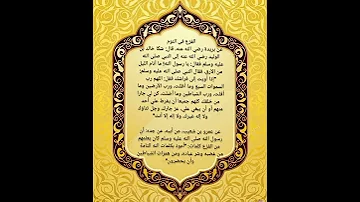 الفزع في النوم
عن بريدة رضي الله عنه، قال: شكا خالد بن
الوليد رضي الله عنه إلى النبي صلى الله
عليه وسلم فقال: يا رسول الله! ما أنام الليل
من الأرق، فقال النبي صلى الله عليه وسلم:
"إذا أويت إلى فراشك فقل: اللهم رب
السموات السبع وما أظلت، ورب الأرضين وما
أقلت، ورب الشياطين وما أضلت، كن لي جارا
من خلقك كلهم جميعا أن يفرط علي أحد
منهم أو أن يبغي علي، عز جارك، وجل ثناؤك
ولا إله غيرك، ولا إله إلا أنت"
عن عمرو بن شعيب، عن أبيه، عن جده، أن
رسول الله صلى الله عليه وسلم كان يعلمهم
من الفزع كلمات: "أعوذ بكلمات الله التامة
من غضبه وشر عباده، ومن همزات الشياطين
وأن يحضرون"